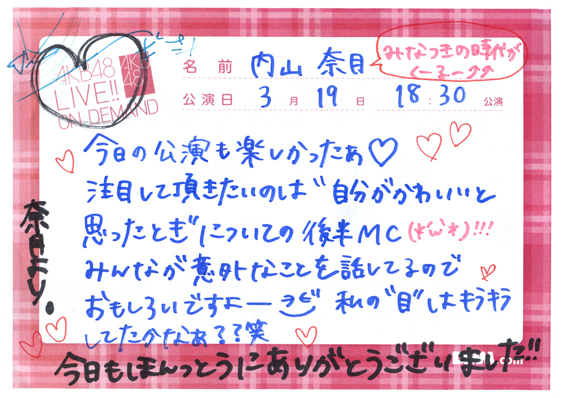 AKB48
LIVE!!
ON DEMAND
AKB
48
名前 内山 奈月
みなつきの時代が
くーるーッッ
公演日 3月19日 18:30公演
今日の公演も楽しかったぁ♡
注目して頂きたいのは"自分がかわいいと
思ったとき"についての後半MC(*´ω`*)!!!
みんなが意外なことを話してるので
おもしろいですよー 私の"目"はキラキラ
してたかなぁ??笑
奈月より。
今日もほんっとうにありがとうございました!!
.com